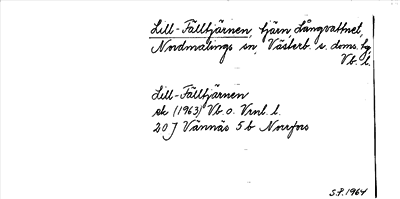 Lill-Fälltjärnen, tjärn, Långvattnet,
Nordmalings sn, Västerb. s. doms. hg,
Vb. l.
Lill-Fälltjärnen
ek (1963) Vb o. Vrnl. l.
20 J Vännäs 5 b Norrfors
S.P. 1964